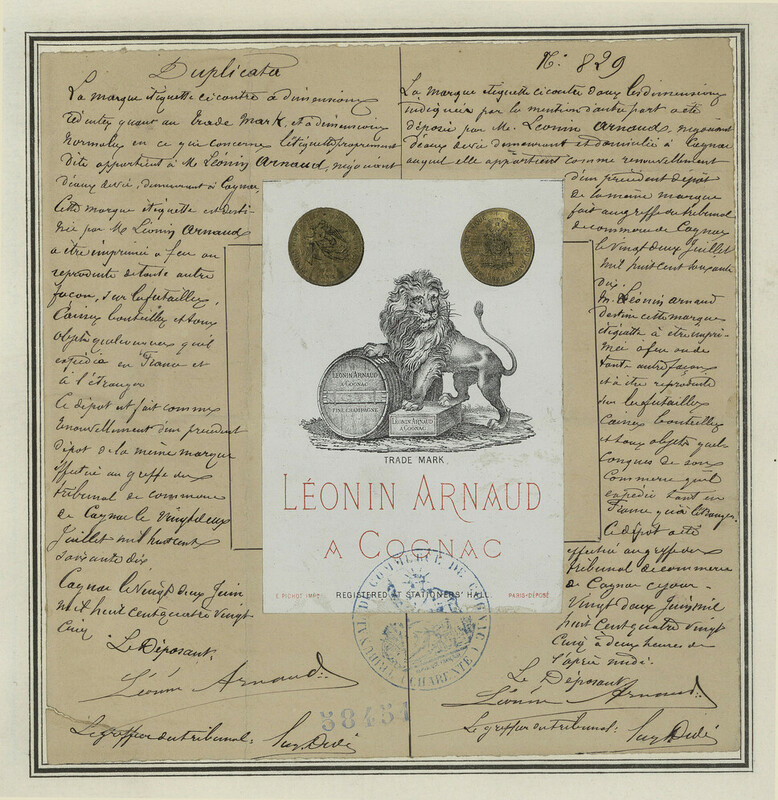 Duplicata
La marque etiquette ci contre a dimensions
quant au trade mark, et a dimensions
Normales en ce qui concerne l'étiquette proprement
dite appartient à Mr Léonin Arnaud, négociant
d'eaux de vie, demeurant à Cognac,
Cette marque etiquette est desti-
née par Mr Léonin Arnaud
a être imprimée a feu ou
reproduite de toute autre
façon, sur les futailles,
Caisses bouteilles et tous
objets quelconques qu'il
expédie en France et
à l'étranger
Ce dépot est fait comme
renouvellement d'un précédent
dépot de la même marque
effectué au greffe du
tribunal de commerce
de Cognac le vingt deux
Juillet mil huit cent
soixante dix
Cognac le vingt deux Juin
mil huit cent quatre vingt
Cinq
Le Déposant,
Léonin Arnaud
Le greffier du tribunal:
No: 829
La marque etiquette ci contre dans les dimensions
indiquées par la mention d'autre part a été
déposée par Mr. Léonin Arnaud, négociant
d'eaux de vie demeurant et domicilié à Cognac
auquel elle appartient comme renouvellement
d'un précédent dépôt
de la même marque
fait au greffe du tribunal
de commerce de Cognac
le vingt deux Juillet
mil huit cent soixante
dix.
M. Léonin Arnaud
destine cette marque
etiquette à être impri-
mée à feu ou de
toute autre façon
et à être reproduite
sur les futailles
Caisses bouteilles
et tous objets quel-
conques de son
Commerce qu'il
expédie tant en
France qu'à l'étranger.
Ce dépôt a été
effectué au greffe du
tribunal de commerce
de Cognac ce jour
Vingt deux Juin mil
huit cent quatre vingt
Cinq à deux heures de
l'après midi.
Le Déposant
Léonin Arnaud
Le greffier du tribunal:
LÉONIN ARNAUD
A COGNAC
FINE CHAMPAGNE
LÉONIN ARNAUD
A COGNAC
TRADE MARK.
LÉONIN ARNAUD
A COGNAC
E. PICHOT IMP. REGISTERED AT STATIONERS' HALL. PARIS-DÉPOSÉ
TRIBUNAL DE COMMERCE DE COGNAC (CHARENTE)
58454